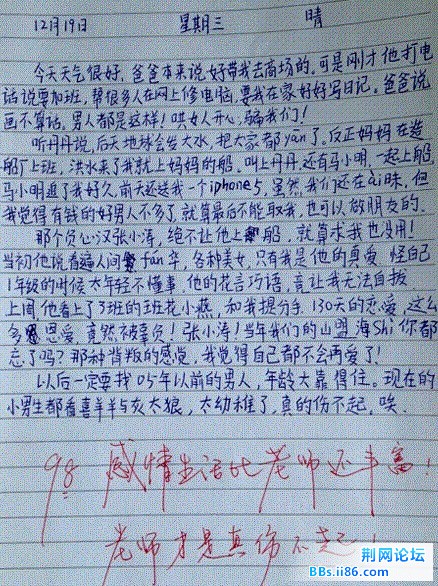 12月19日 星期三 晴
今天天气很好，爸爸本来说好带我去商场的。可是刚才他打电
话说要加班，帮很多人在网上修电脑，要我在家好好写日记。爸爸说
画不算话，男人都是这样！哄女人开心，骗我们！
听丹丹说，后天地球会发大水，把大家都yān了。反正妈妈在造
船厂上班，洪水来了我就上妈妈的船。叫上丹丹还有马小明，一起上船，
马小明追了我好久，前天还送我一个iphone5，虽然我们还在ài昧，但
我觉得有钱的好男人不多了，就算最后不能取我，也可以做朋友的。
那个负心汉张小涛，绝不让他上船，就算求我也没用！
当初他说看遍人间fán华，各种美女，只有我是他的真爱，怪自己
1年级的时候太年轻不懂事，他的花言巧语，竟让我无法自拔。
上周他看上了3班的班花小燕，和我提分手，130天的恋爱，这么
多恩爱，竟然被辜负！张小涛！当年我们的山盟海Shì你都
忘了吗？那种背叛的感觉，我觉得自己都不会再爱了！
以后一定要找05年以前的男人，年龄大靠得住。现在的
小男生都看喜羊羊与灰太狼，太幼稚了，真的伤不起，唉。
98 感情生活比老师还丰富！
老师才是真伤不起！
荆网论坛
BBs.ii86.com